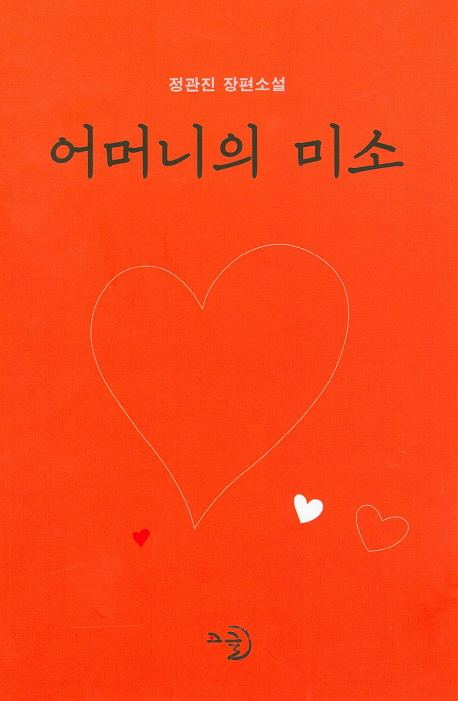 정관진 장편소설
어머니의 미소
고글